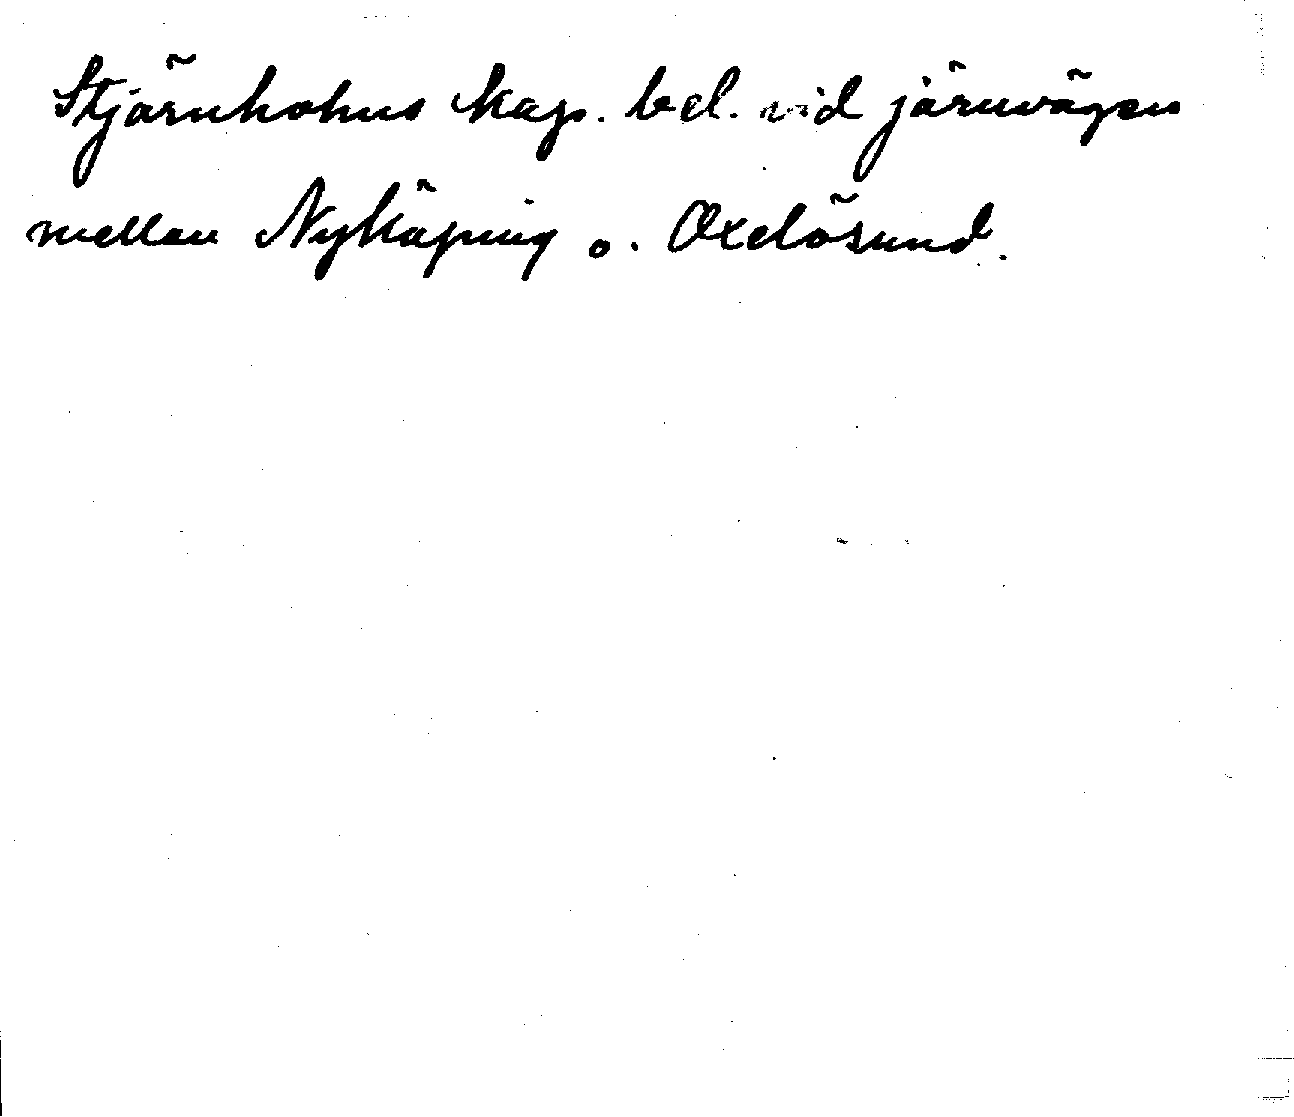 Stjärnholms kap. bel. vid järnvägen
mellan Nyköping o. Oxelösund.